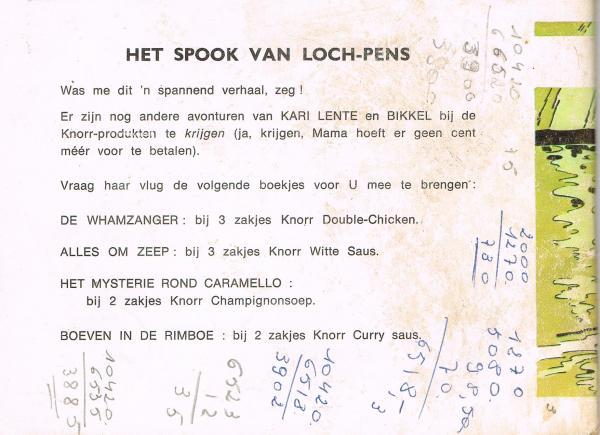 HET SPOOK VAN LOCH-PENS
Was me dit 'n spannend verhaal, zeg !
Er zijn nog andere avonturen van KARI LENTE en BIKKEL bij de
Knorr-produkten te krijgen (ja, krijgen, Mama hoeft er geen cent
méér voor te betalen).
Vraag haar vlug de volgende boekjes voor U mee te brengen :
DE WHAMZANGER : bij 3 zakjes Knorr Double-Chicken.
ALLES OM ZEEP : bij 3 zakjes Knorr Witte Saus.
HET MYSTERIE ROND CARAMELLO :
bij 2 zakjes Knorr Champignonsoep.
BOEVEN IN DE RIMBOE : bij 2 zakjes Knorr Curry saus.
10420
66520
3900
15
2000
1270
730
1270
5080
98,50
70
6518,-
10420
6518
3902
6523
12
35
10420
6535
3885